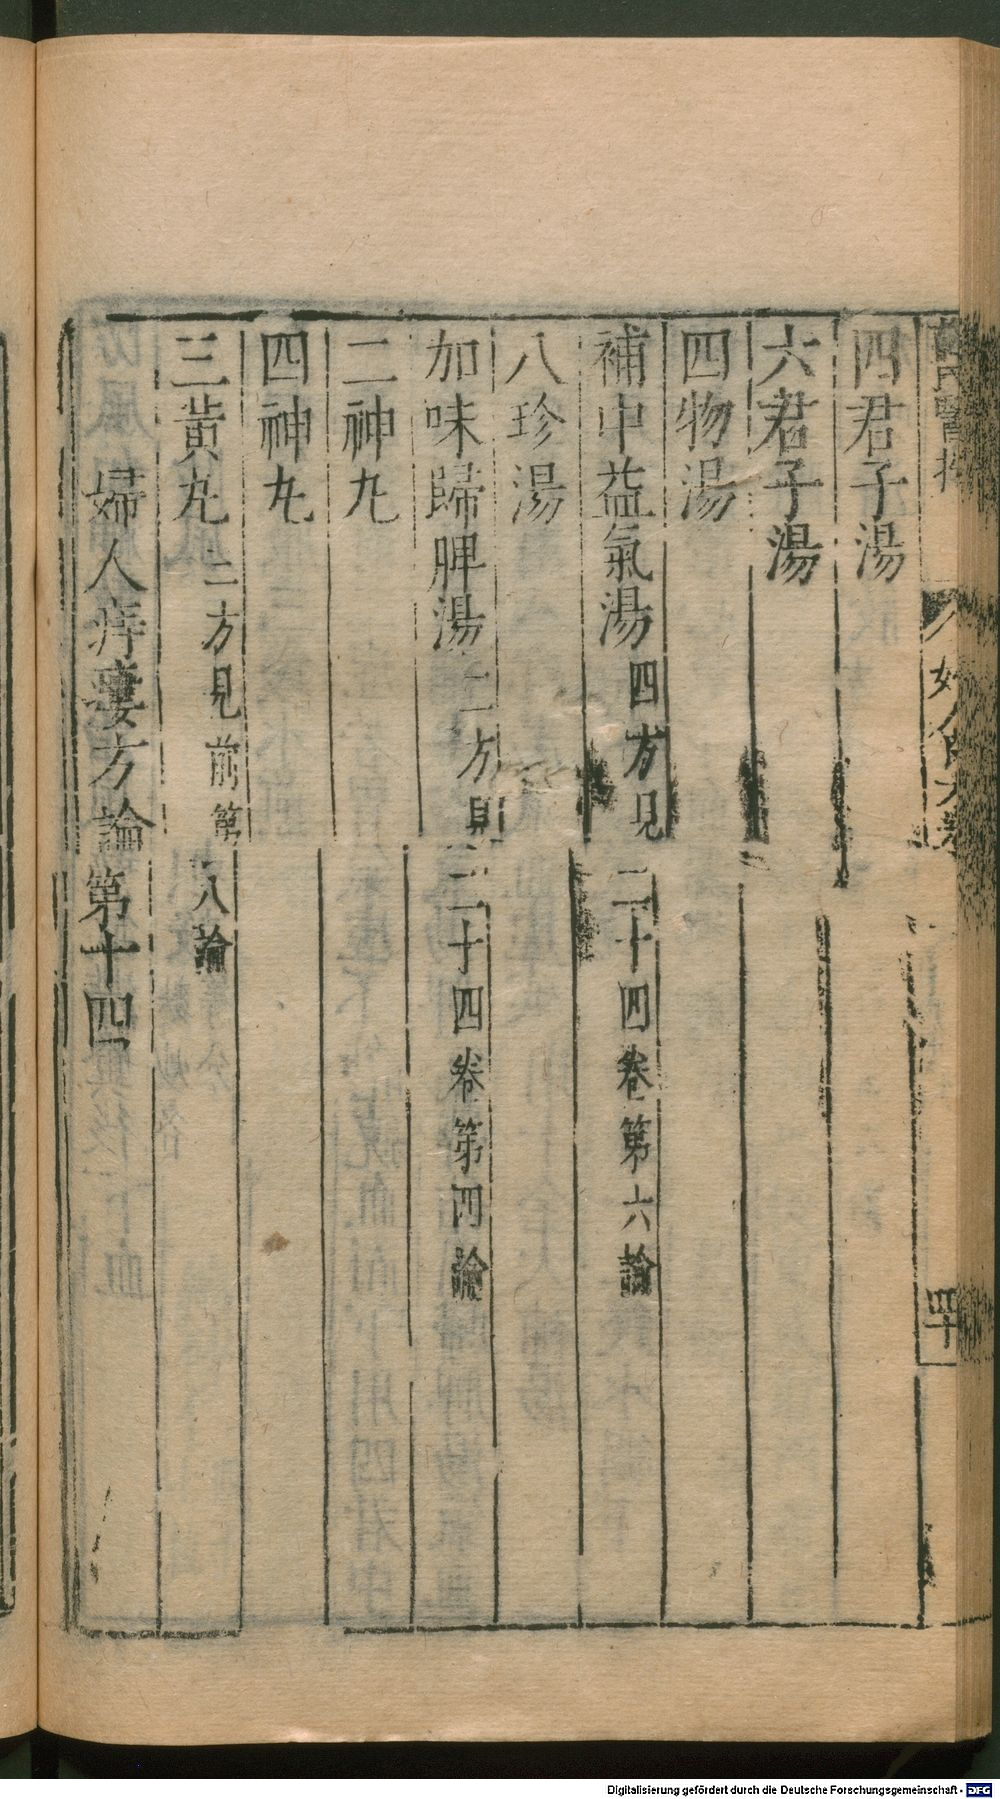 四君子湯
六君子湯
四物湯
補中益氣湯 四方見二十四卷第六論
八珍湯
加味歸脾湯 二方見二十四卷第四論
二神丸
四神丸
三黄丸 二方見前第八論
婦人痔瘻方論第十四
四十
Digitalisierung gefördert durch die Deutsche Forschungsgemeinschaft - DFG